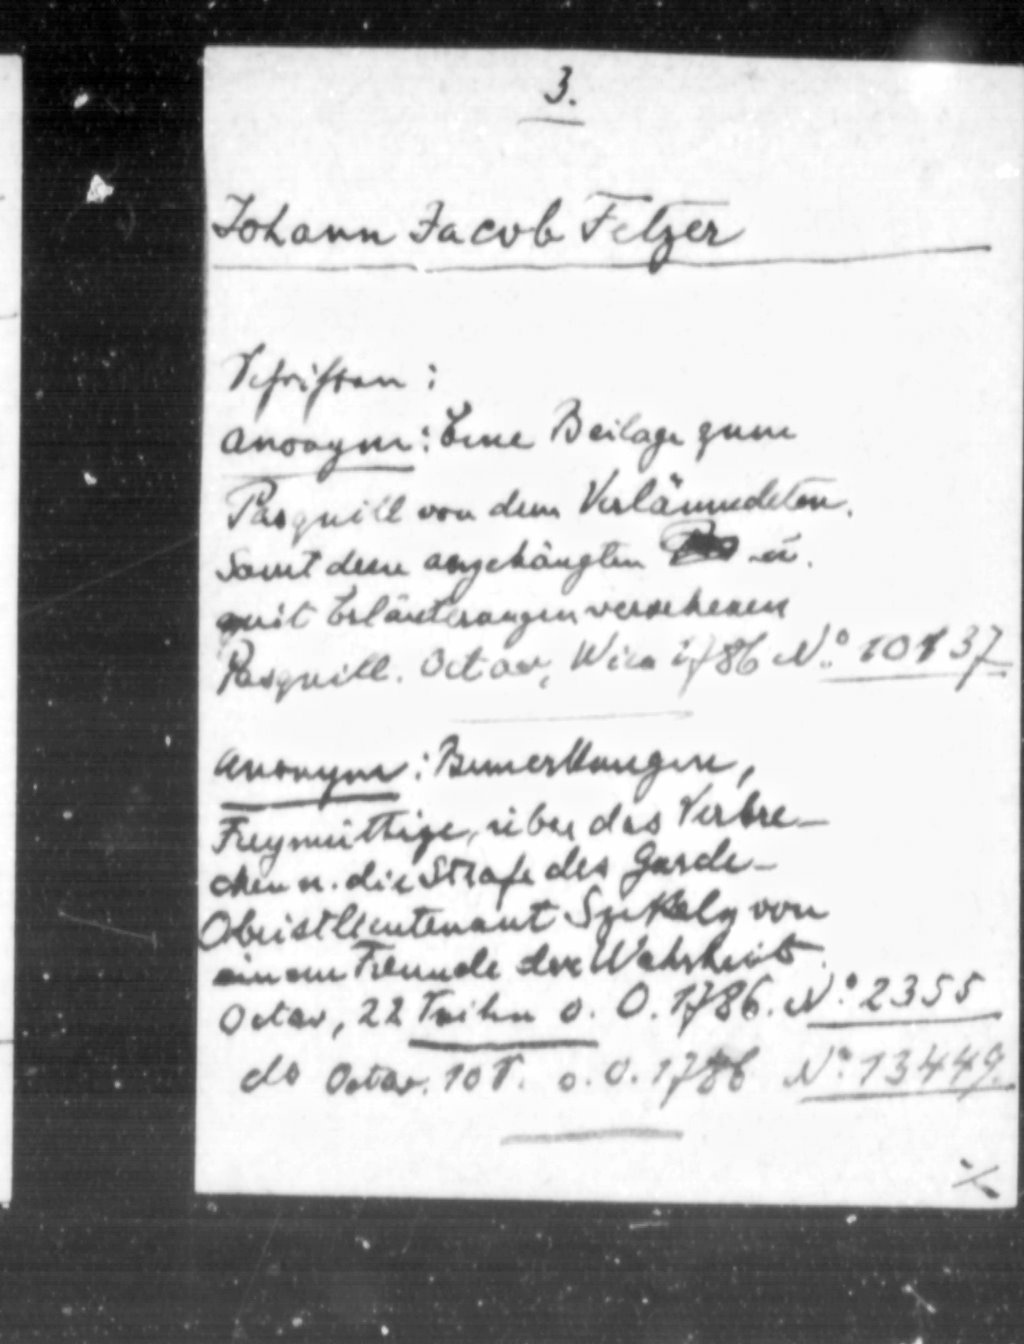 3.
Johann Jacob Fetzer
Schriften:
Anonym: Eine Beilage zum
Pasquill von dem Verläumdeten.
Samt dem angehängten u.
mit Erläuterungen versehenen
Pasquill. Octav, Wien 1786 No. 10137
Anonym: Bemerkungen,
Freymüthige, über das Verbre-
chen u. die Strafe des Garde-
Obristlieutenant Szekely von
einem Freunde der Wahrheit.
Octav, 22 o. O. 1786. No. 2355
do Octav. 10 o. O. 1786 No. 13449.